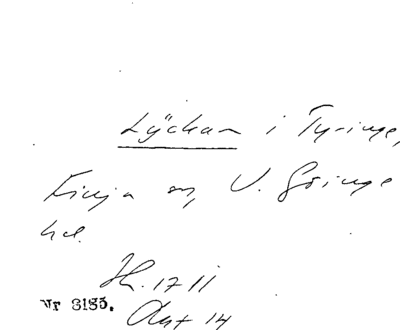 Lyckan i Tyringe,
Finja sn, V. Göinge
hd.
Jfr. 17 II
Nr 3185. Ant 14